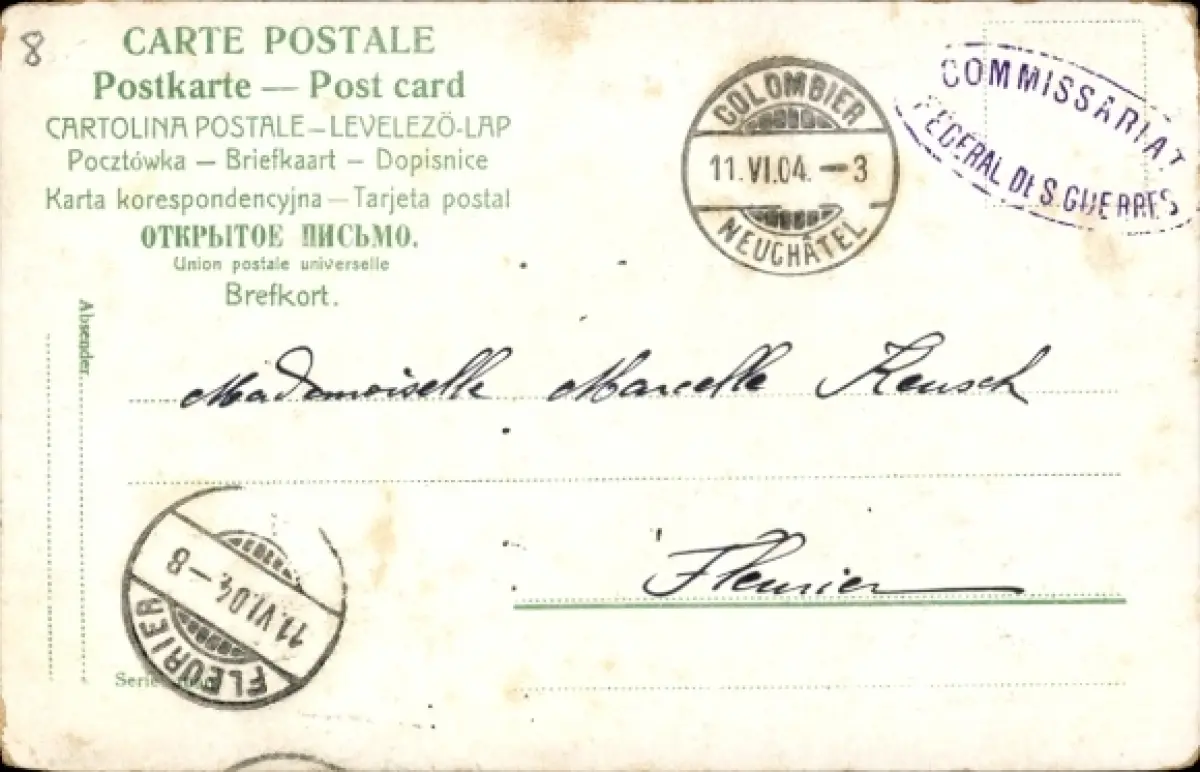 8
CARTE POSTALE
Postkarte — Post card
CARTOLINA POSTALE – LEVELEZÖ-LAP
Pocztówka — Briefkaart — Dopisnice
Karta korespondencyjna — Tarjeta postal
ОТКРЫТОЕ ПИСЬМО.
Union postale universelle
Brefkort.
COLOMBIER
11.VI.04. — 3
NEUCHÂTEL
COMMISSARIAT
FEDERAL DES GUERRES
Absender
Mademoiselle Marcelle Reusch
Fleurier
11.VI.04. — 8
FLEURIER
Serie